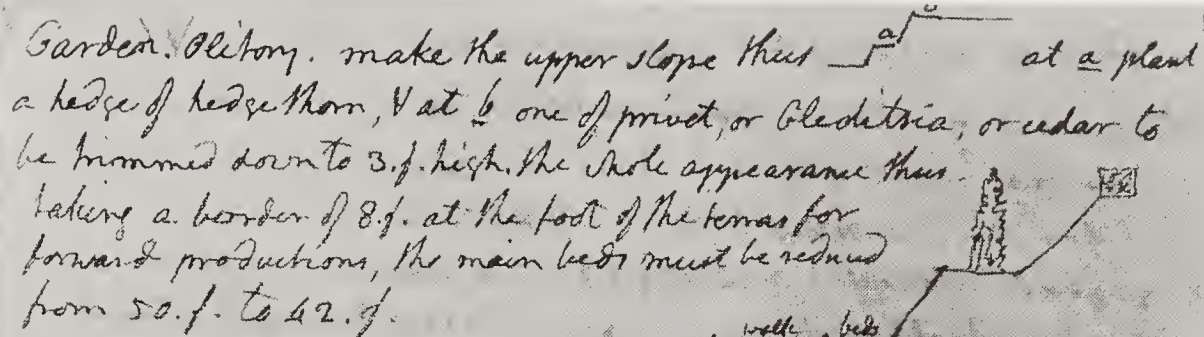 b
Garden. Olitory. make the upper slope thus a at a plant
a hedge of hedgethorn, & at b one of privet, or Gleditsia, or cedar to
be trimmed down to 3.f. high. the whole appearance thus
taking a border of 8.f. at the foot of the terras for
forward productions, the main beds must be reduced
from 50.f. to 42.f.
walk beds